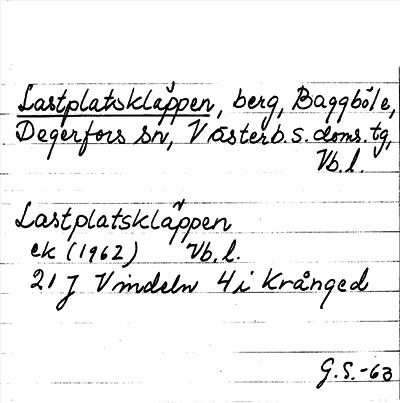 Lastplatskläppen, berg, Baggböle,
Degerfors sn, Västerb. s. doms. tg,
Vb. l.
Lastplatskläppen
ek (1962) Vb. l.
21 J Vindeln 4 i Krånged
G. S. -63